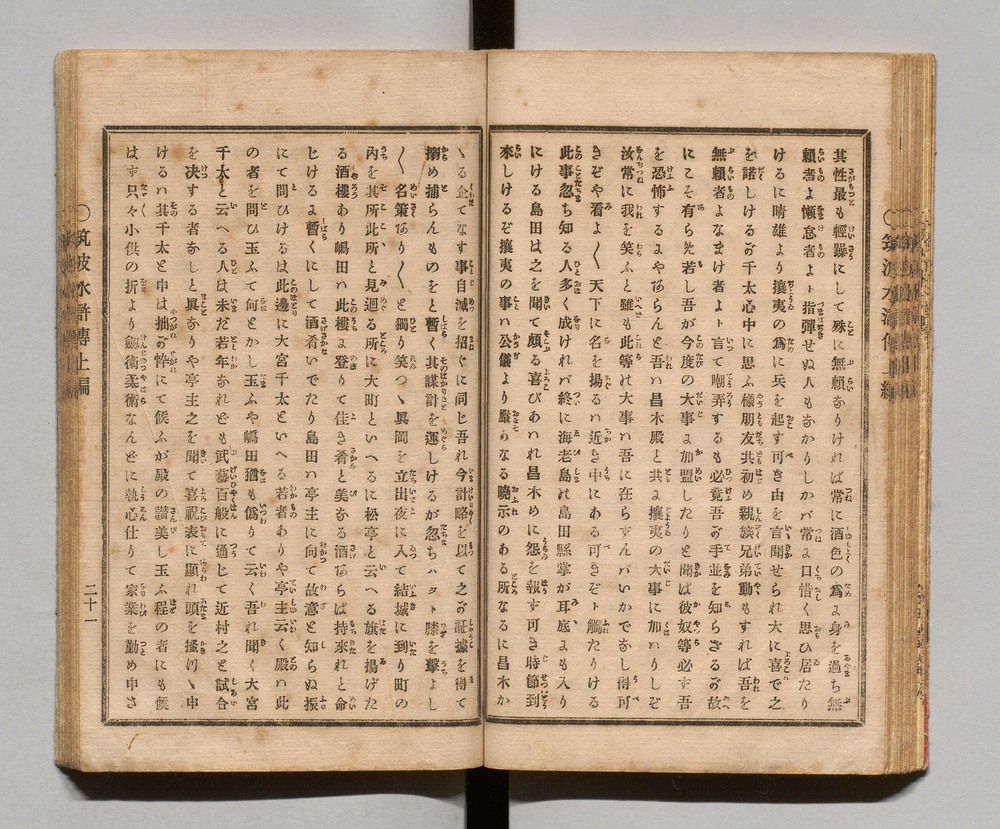 其性最も輕躁にして殊に無頼ありければ常に酒色の爲ょ身を過ち無
頼者よ懶怠者よト指彈せぬ人もあかりしかバ常ょ口惜く思ひ居たり
けるに晴雄より攘夷の爲に兵を起す可き由を言聞せられ大に喜で之
を諾しけるが千太心中に思ふ樣朋友共初め親族兄弟動もすれば吾を
無頼者よなまけ者よト言つて嘲弄するも必竟吾が手並を知らざるが故
にこそ有らえ若し吾が今度の大事ょ加盟したりと聞ば彼奴等必ず吾
を恐怖するよやあらんと吾ハ昌木殿と共ょ攘夷の大事に加ハりしぞ
汝常に我を笑ふと雖も此等れ大事ハ吾に在らずんバいかでかし得可
きぞや看よ〱天下に名を揚るハ近き中にある可きぞト觸たりける
此事忽ち知る人多く成けれバ終に海老島れ島田縣掌が耳底ょも入り
にける島田は之を聞て頗る喜びあハれ昌木めに怨を報ず可き時節到
來しけるぞ攘夷の事ハ公儀より嚴かなる曉示のある所なるに昌木か
ゝる企てなす事自滅を招ぐに同じ吾れ今計略を以て之が証據を得て
搦め捕らんものをと暫く其謀計を運しけるが忽ちハタト膝を擊ょし
〱名策あり〱と獨り笑つゝ眞岡を立出夜に入つて結城に到り町の
内を其所此所と見廻る所に大町といへるに松亭と云へる旗を揚げた
る酒樓あり嶋田ハ此樓ょ登りて佳き肴と美き酒あらば持來れと命
じけるよ暫くにして酒肴いでたり島田ハ亭主に向て故意と知らぬ振
にて問ひけるは此邊に大宮千太といへる若者ありや亭主云く殿ハ此
の者を問ひ玉ふて何とかし玉ふや嶋田猶も僞りて云く吾れ聞く大宮
千太と云へる人は未だ若年かれども武藝百般に通じて近村之と試合
を決する者かしと眞かりや亭主之を聞て喜視表に顯れ頭を搔ハゝ申
けるハ其千太と申は拙が忰にて候ふが殿の讚美し玉ふ程の者にも候
はず只々小供の折より劔術柔術なんどに執心仕りて家業を勤め申さ
〇筑波水滸傳上編
二十一